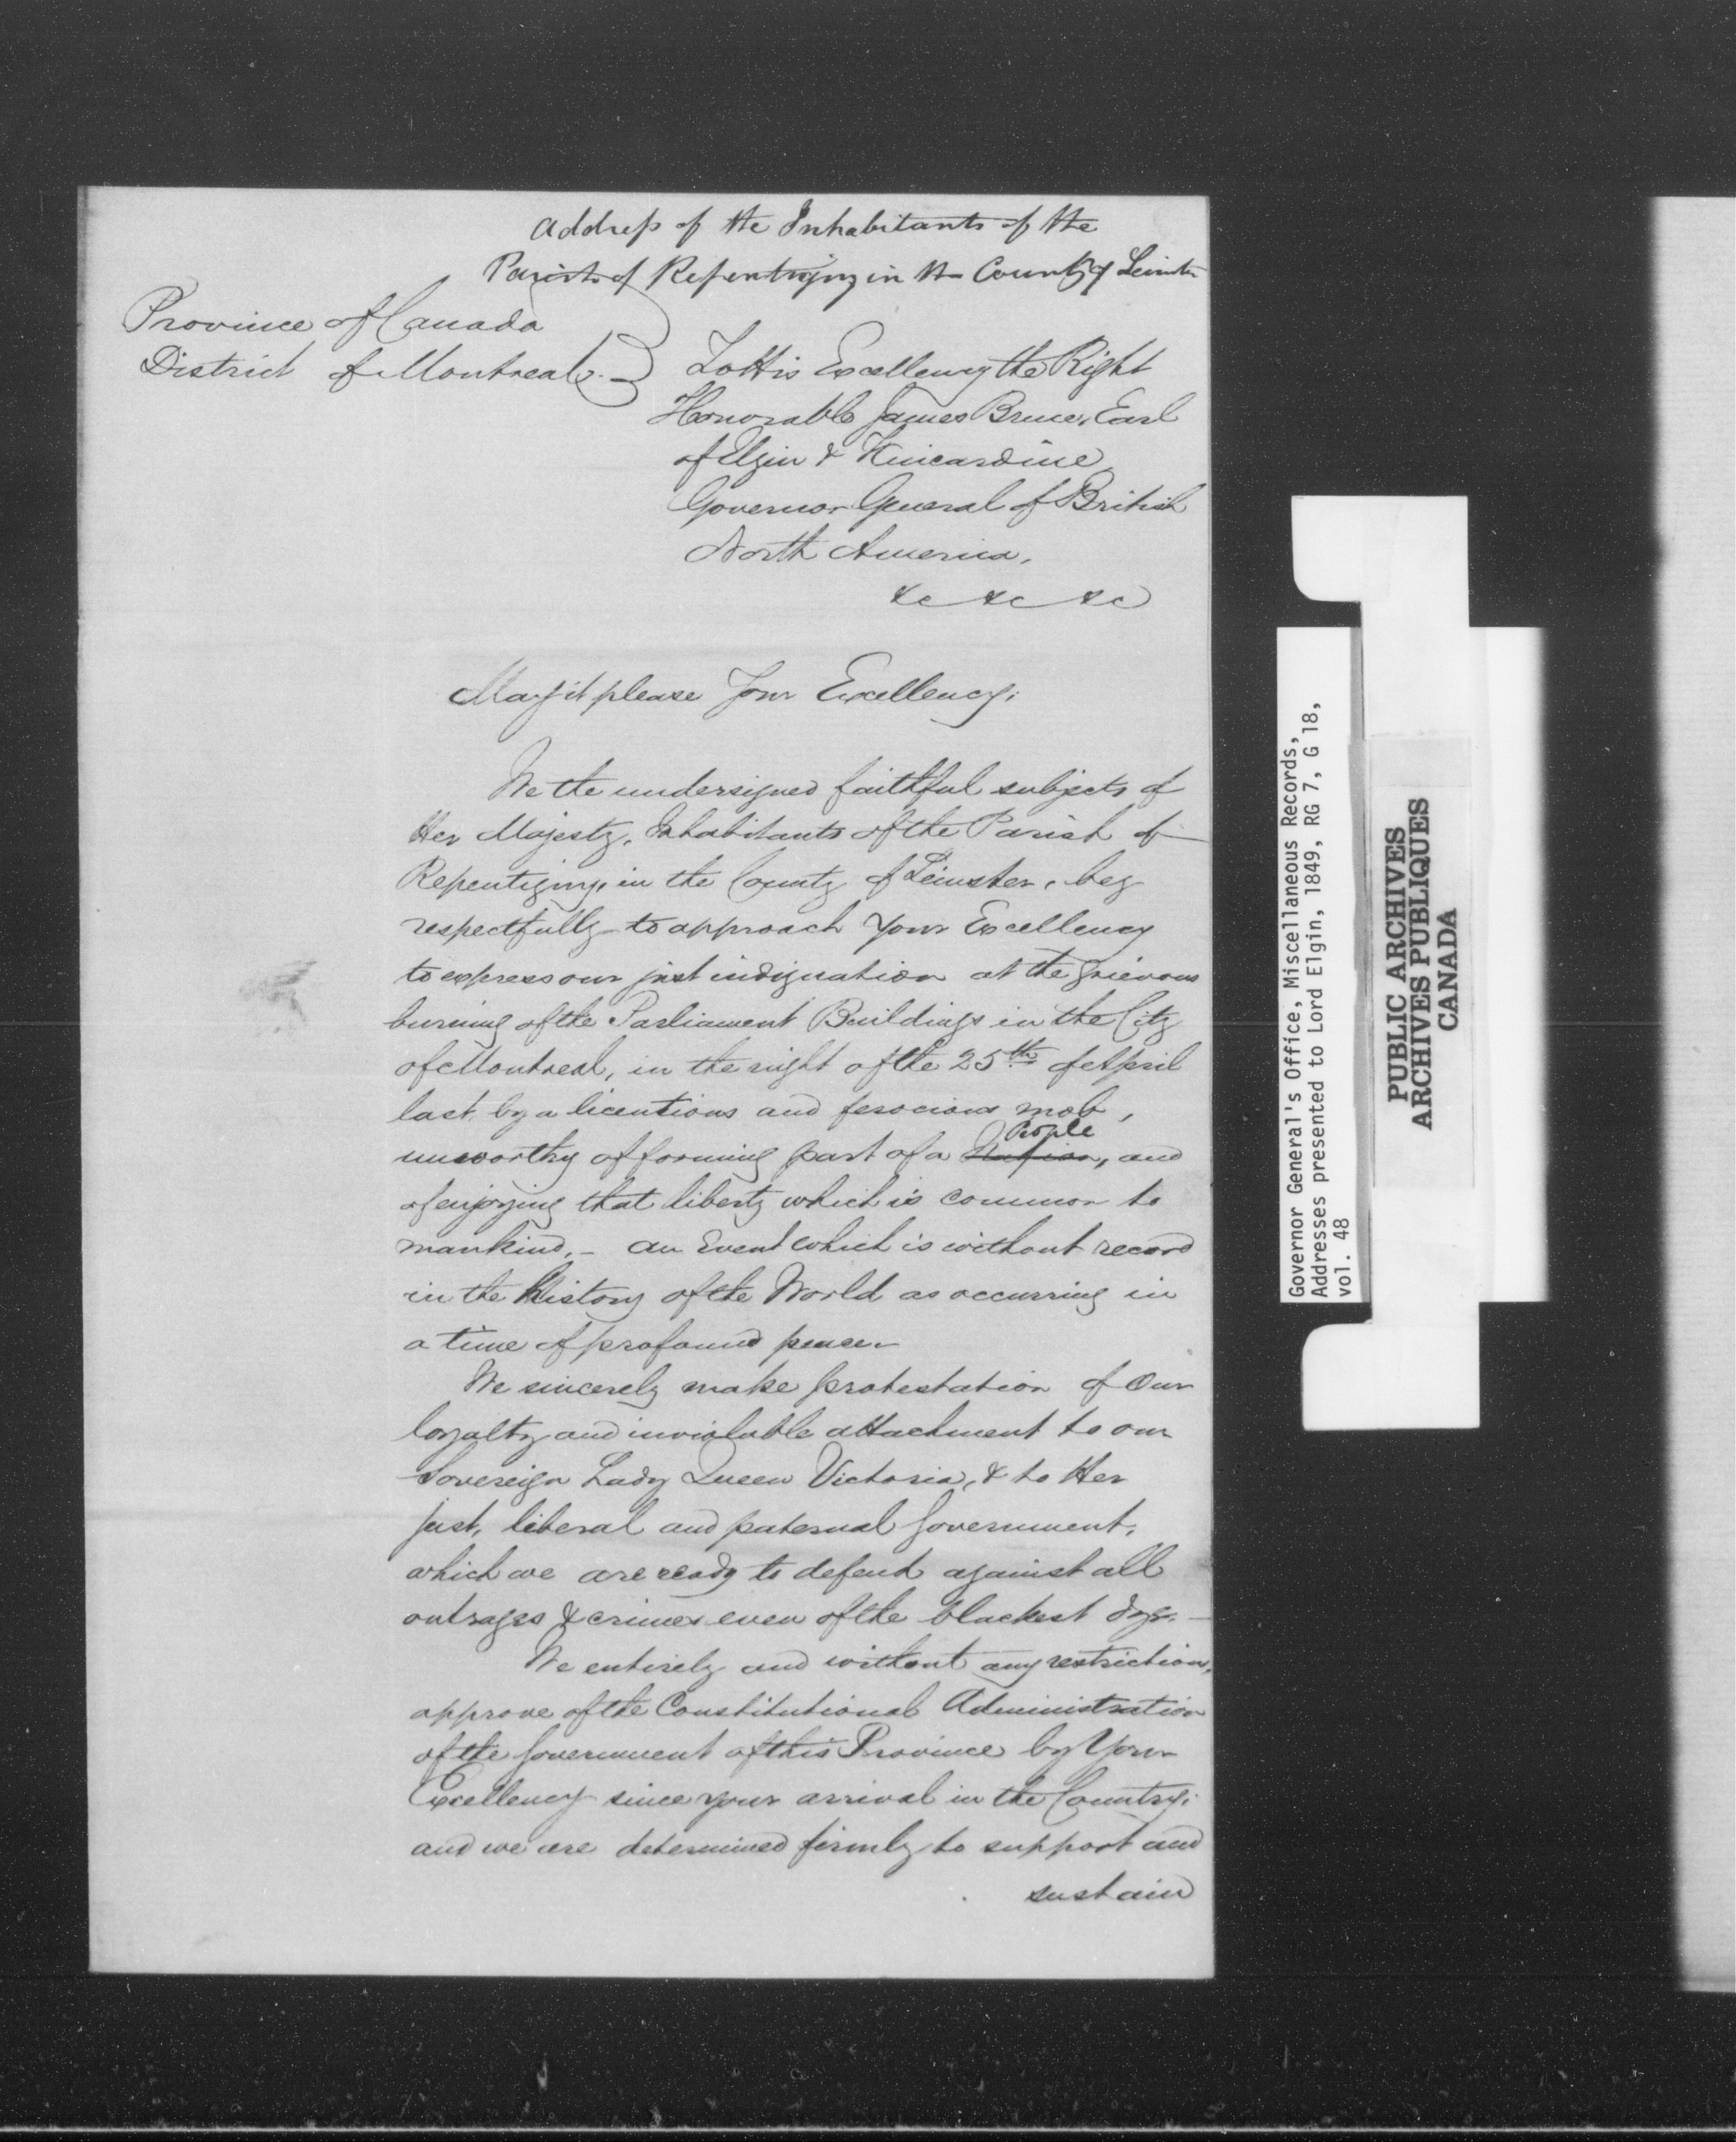 Address of the Inhabitants of the
Parish of Repentigny in the County of Leinster
Province of Canada
District of Montreal.
To His Excellency the Right
Honorable James Bruce, Earl
of Elgin & Kincardine
Governor General of British
North America,
&c &c &c
May it please Your Excellency;
We the undersigned faithful subjects of
Her Majesty, Inhabitants of the Parish of
Repentigny, in the County of Leinster, beg
respectfully to approach Your Excellency
to express our just indignation at the grievous
burning of the Parliament Buildings in the City
of Montreal, in the night of the 25th of April
last, by a licentious and ferocious mob,
People
unworthy of forming part of a Nation, and
of enjoying that liberty which is common to
mankind. - an Event which is without record
in the History of the World as occurring in
a time of profound peace.
We sincerely make protestation of Our
loyalty and inviolable attachment to our
Sovereign Lady Queen Victoria, & to Her
just, liberal and paternal Government,
which we are ready to defend against all
outrages & crimes even of the blackest dye. -
We entirely and without any restriction,
approve of the Constitutional Administration
of the Government of this Province by Your
Excellency since your arrival in the Country;
and we are determined firmly to support and
sustain
Governor General's Office, Miscellaneous Records,
Addresses presented to Lord Elgin, 1849, RG 7, G 18,
vol. 48
PUBLIC ARCHIVES
ARCHIVES PUBLIQUES
CANADA